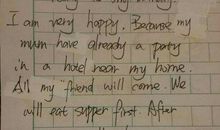 I am very happy. Because my
mum have already a party
in a hotel near my home.
All my friend will come. We
will eat supper first. After